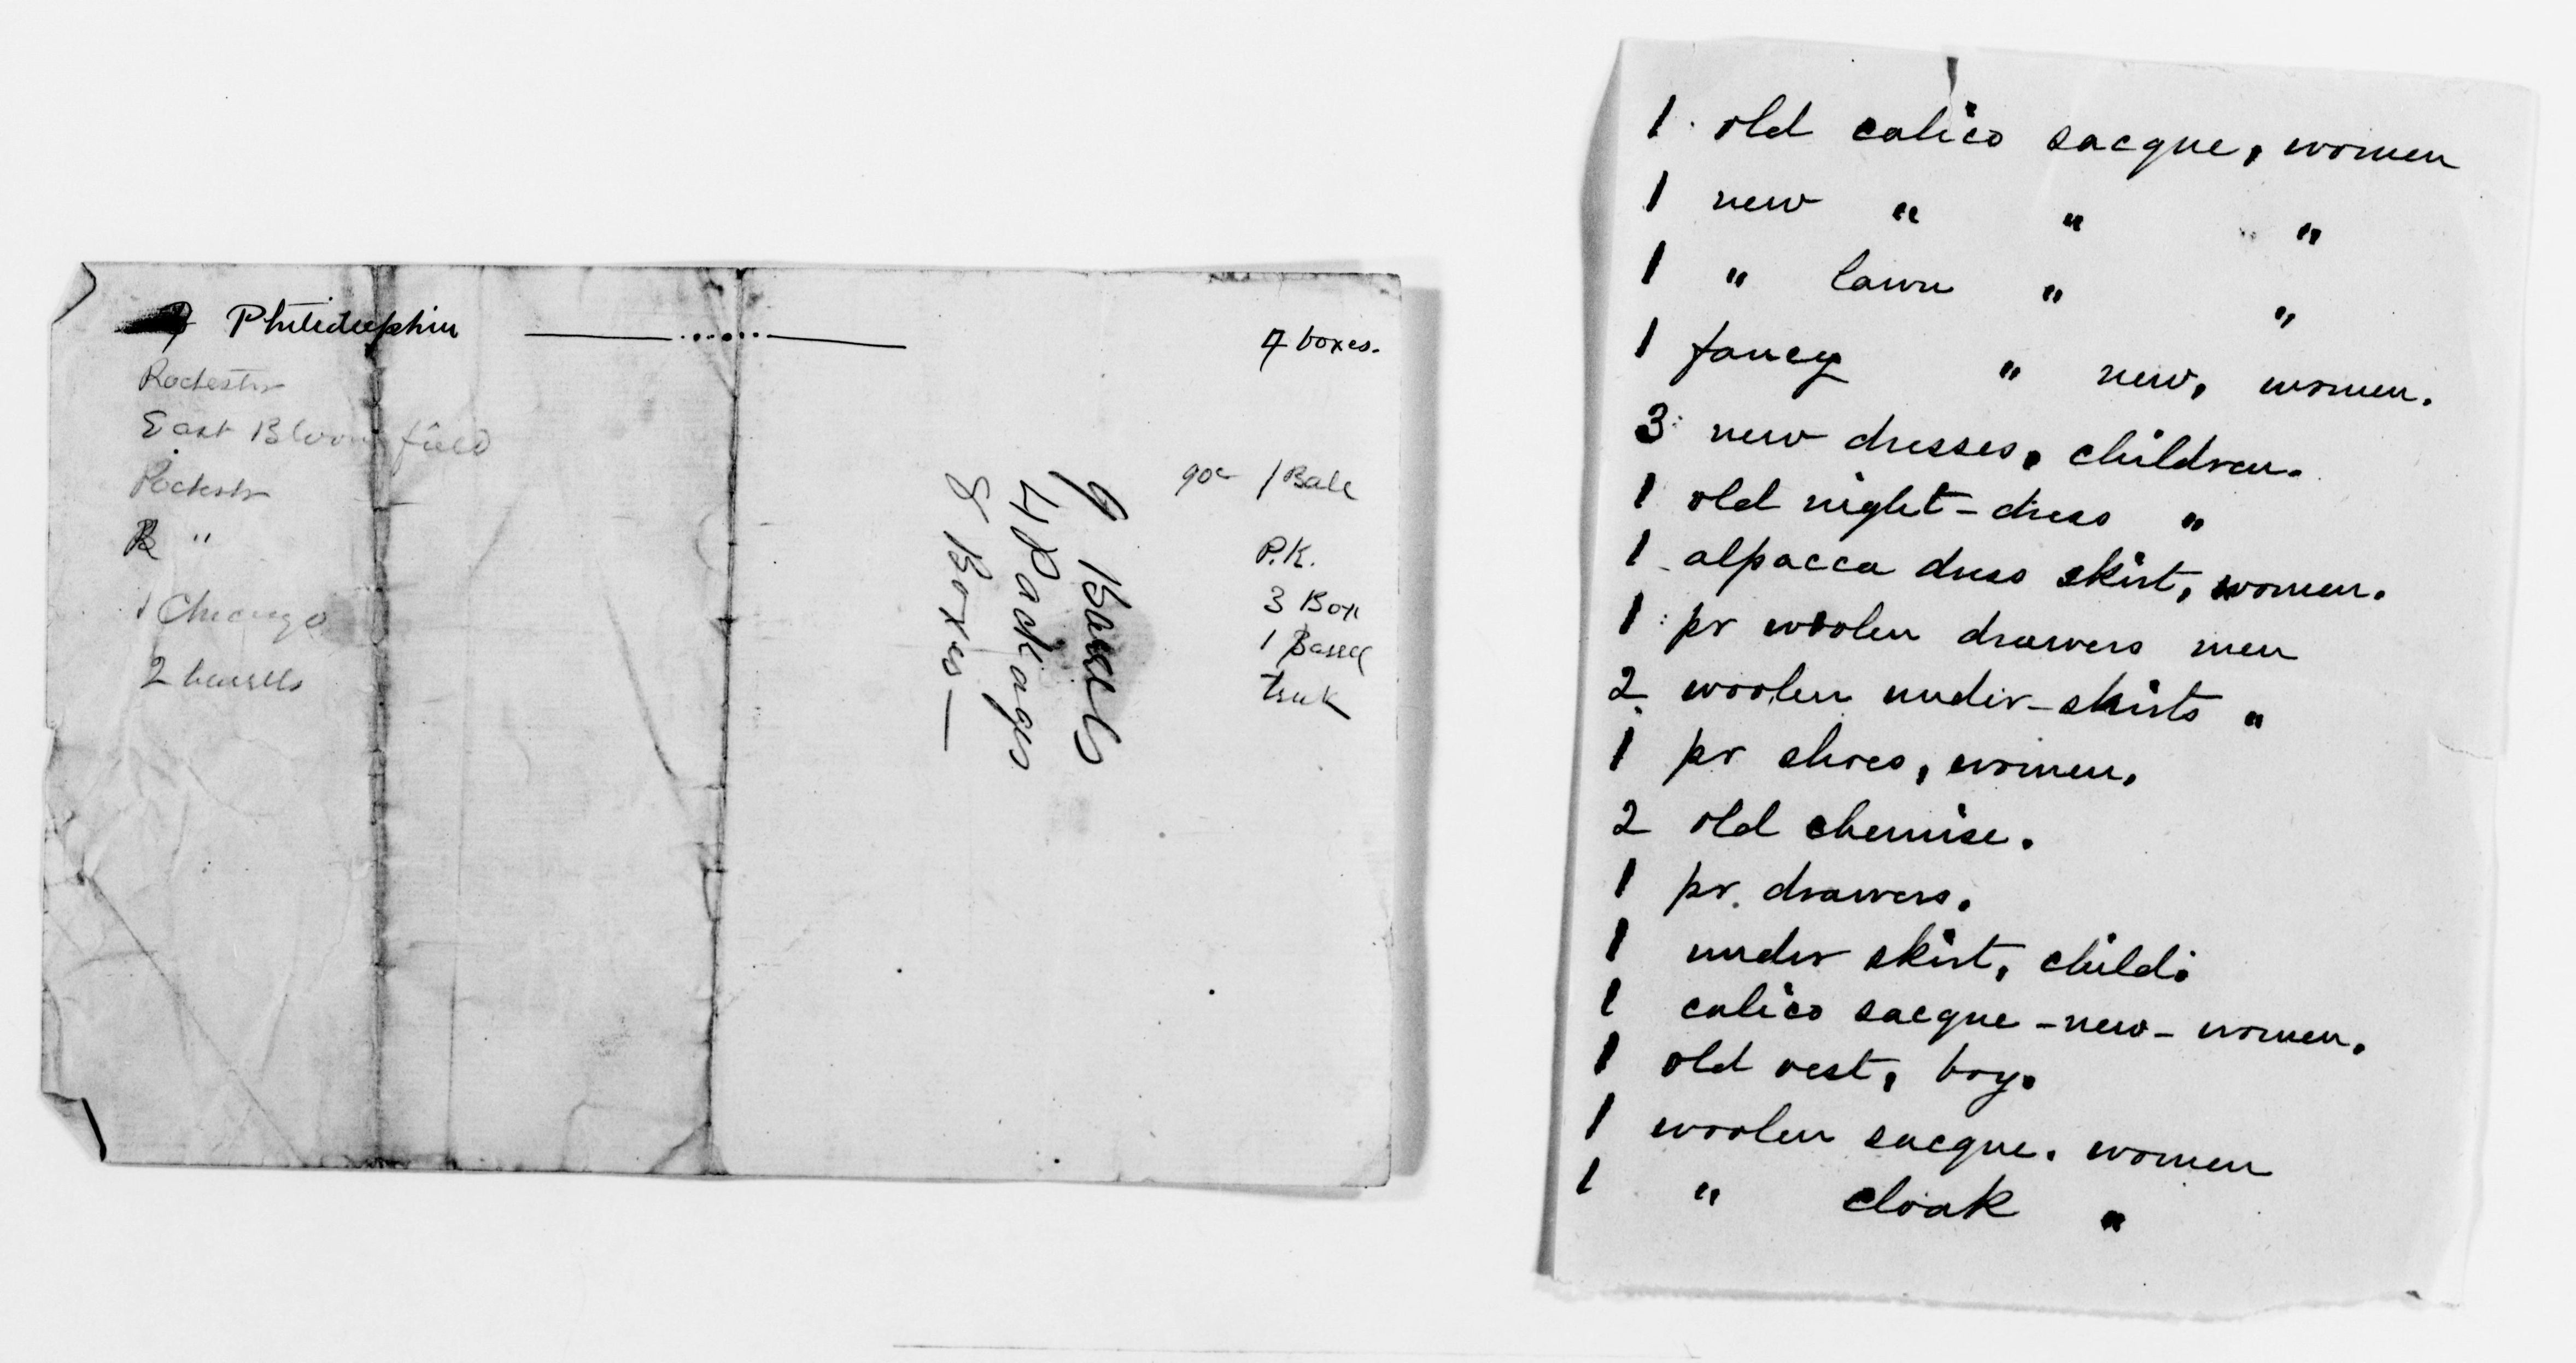 Philidelphia 7 boxes.
Rochester
East Bloomfield
90c 1 Bale
Rochestr
R "
P.K.
1 Chicago
3 Box
1 Barrel
2 barrells
trnk
9 Barrels
4 Packages
8 Boxes —
1 old calico sacque, women
1 new " " "
1 " lawn " "
1 fancy " new, women.
3 new dresses, children.
1 old night-dress "
1 alpacca dress skirt, women.
1 pr woolen drawers men
2 woolen under-shirts "
1 pr shoes, women.
2 old chemise.
1 pr. drawers.
1 under skirt, child.
1 calico sacque - new - women.
1 old vest, boy.
1 woolen sacque. women
1 " cloak "